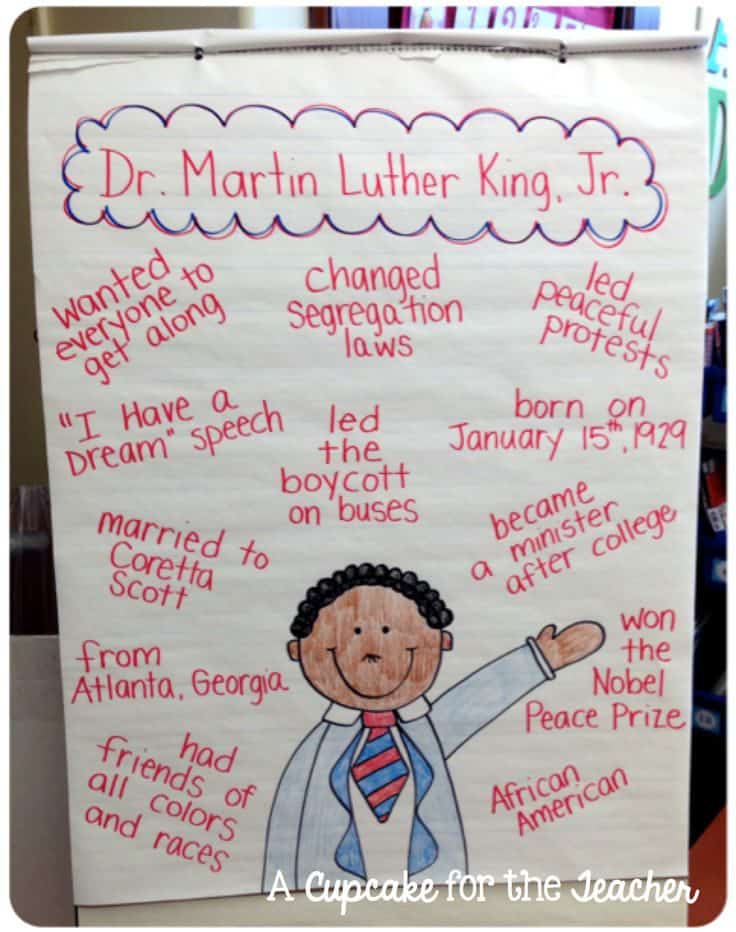 Dr. Martin Luther King, Jr.
wanted
everyone to
get along
changed
segregation
laws
led
peaceful
protests
"I Have a
Dream" speech
led
the
boycott
on buses
born on
January 15th, 1929
married to
Coretta
Scott
became
a minister
after college
from
Atlanta, Georgia
won
the
Nobel
Peace Prize
had
friends of
all colors
and races
African
American
A Cupcake for the Teacher